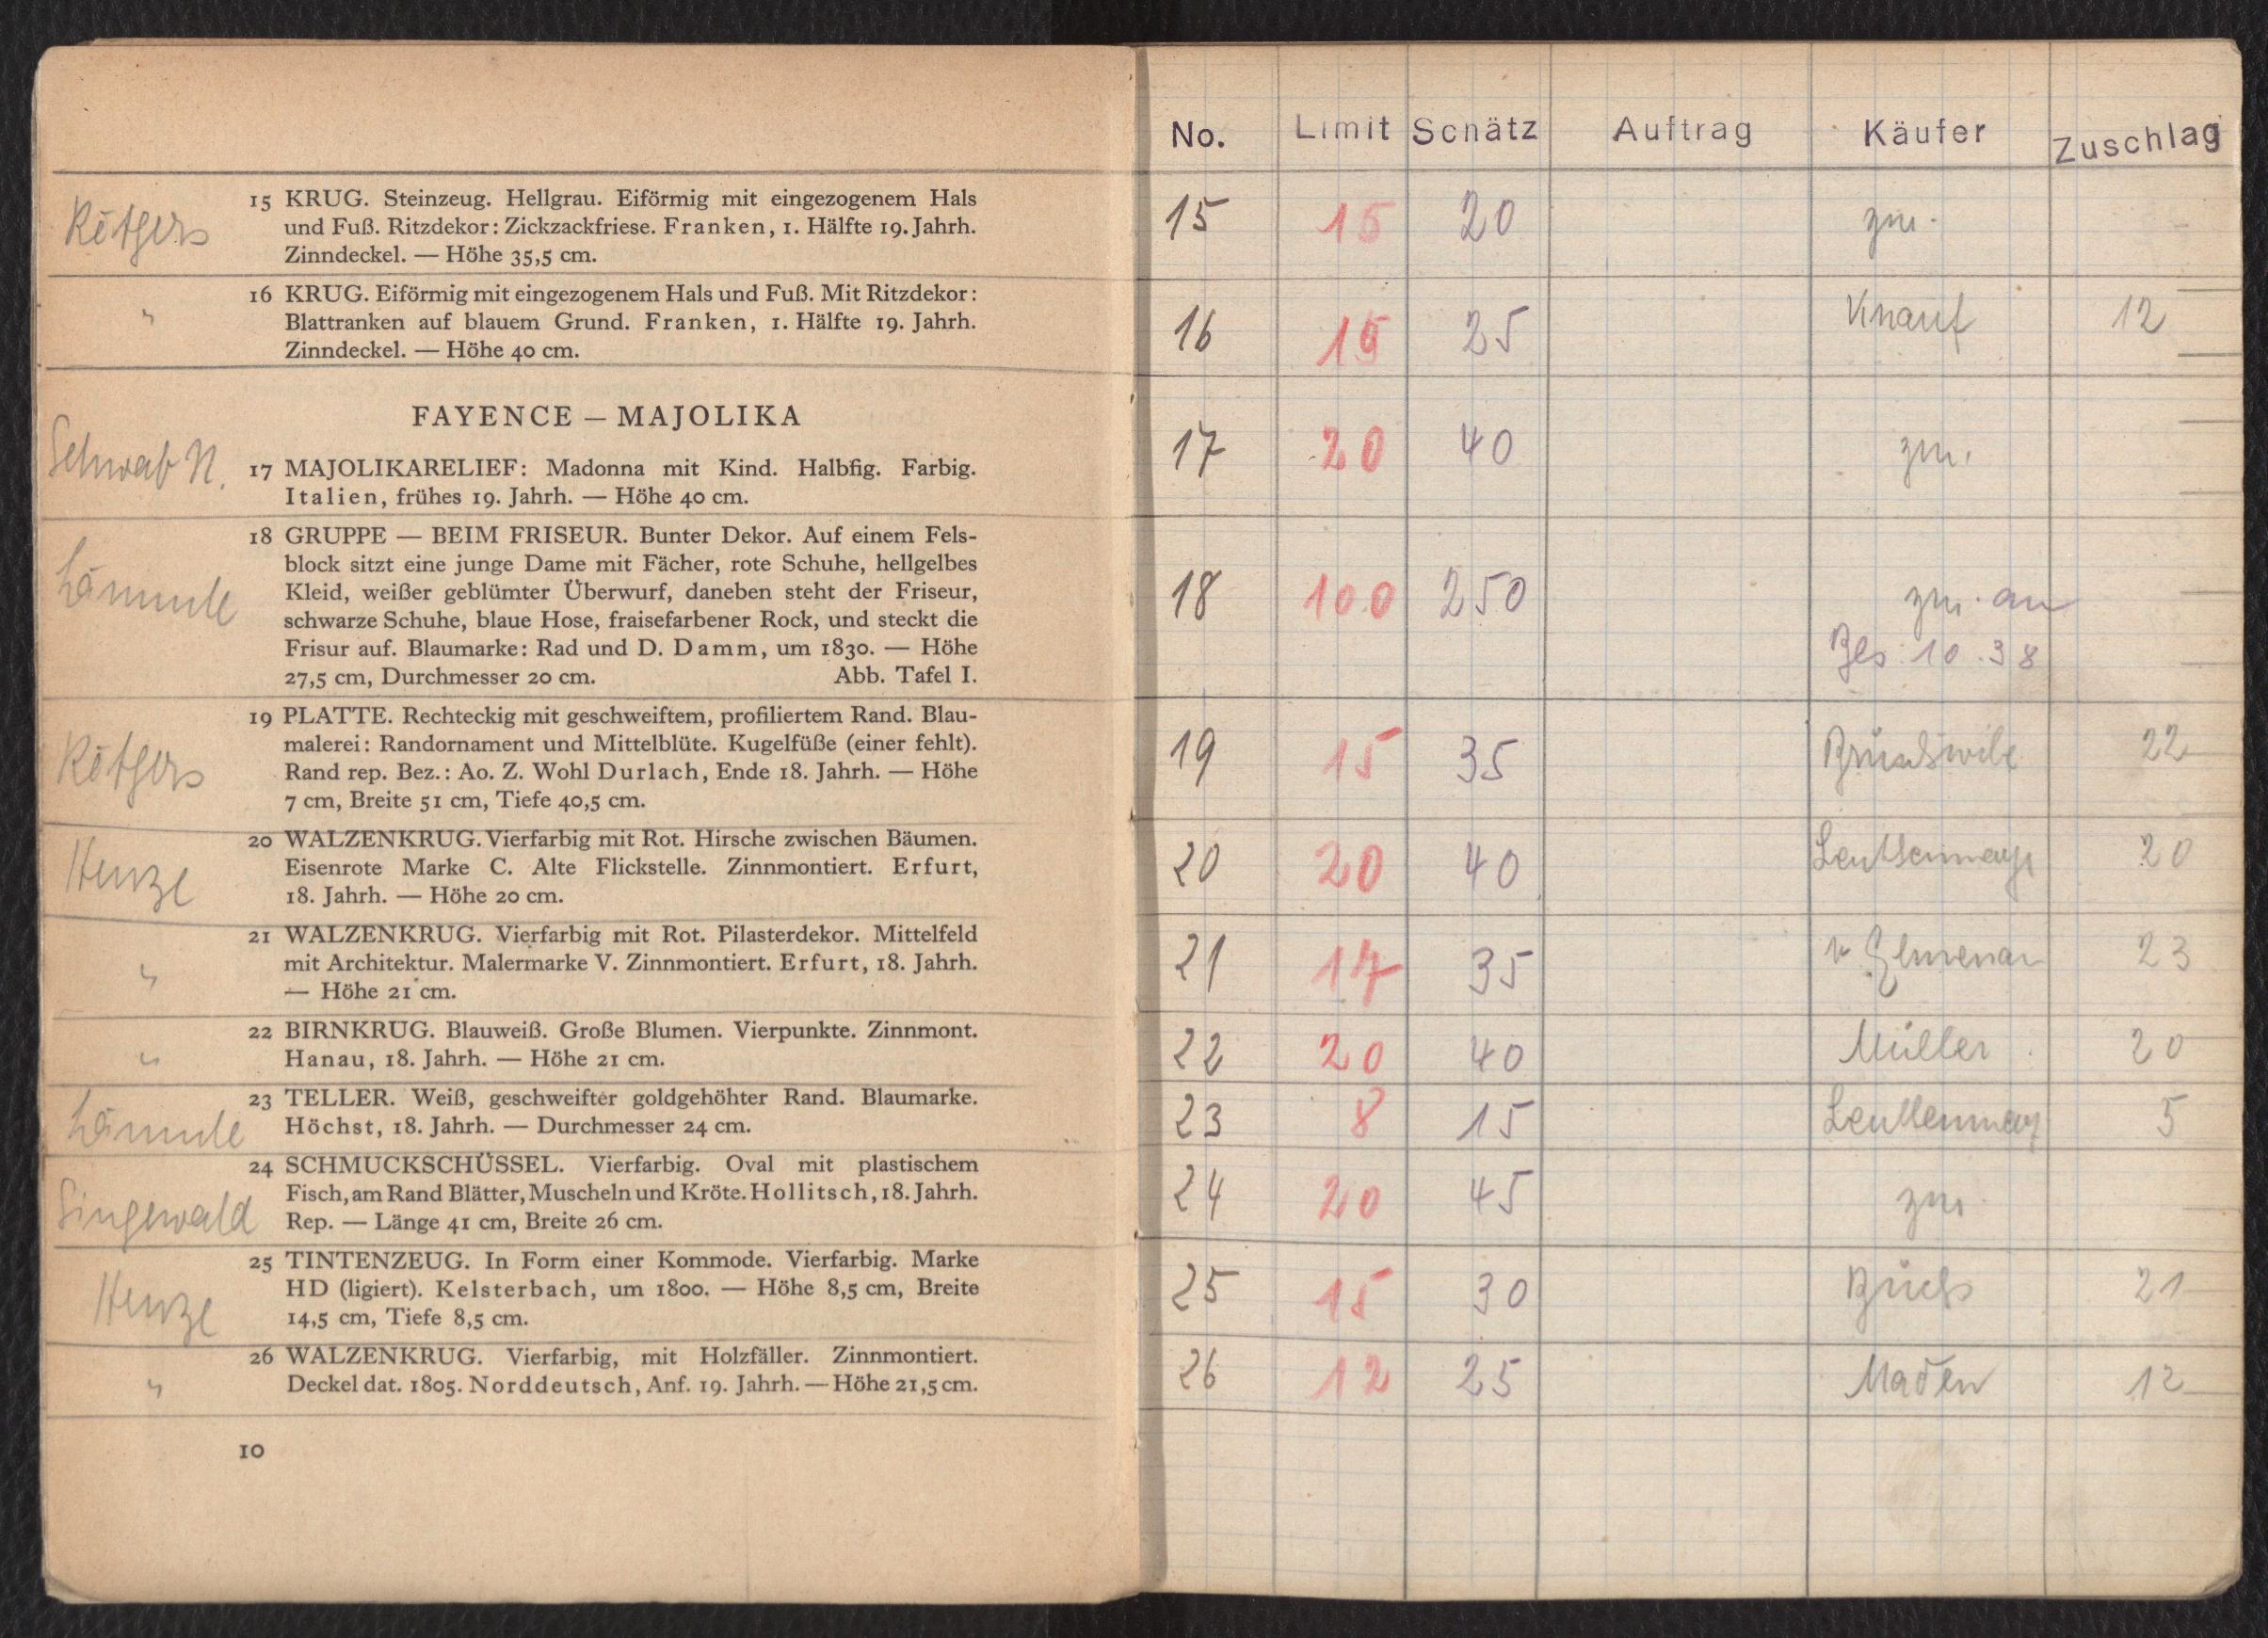 15 KRUG. Steinzeug. Hellgrau. Eiförmig mit eingezogenem Hals
und Fuß. Ritzdekor: Zickzackfriese. Franken, 1. Hälfte 19. Jahrh.
Zinndeckel. — Höhe 35,5 cm.
"
16 KRUG. Eiförmig mit eingezogenem Hals und Fuß. Mit Ritzdekor:
Blattranken auf blauem Grund. Franken, 1. Hälfte 19. Jahrh.
Zinndeckel. — Höhe 40 cm.
FAYENCE — MAJOLIKA
Schwab N.
17 MAJOLIKARELIEF: Madonna mit Kind. Halbfig. Farbig.
Italien, frühes 19. Jahrh. — Höhe 40 cm.
Lämmle
18 GRUPPE — BEIM FRISEUR. Bunter Dekor. Auf einem Fels-
block sitzt eine junge Dame mit Fächer, rote Schuhe, hellgelbes
Kleid, weißer geblümter Überwurf, daneben steht der Friseur,
schwarze Schuhe, blaue Hose, fraisefarbener Rock, und steckt die
Frisur auf. Blaumarke: Rad und D. Damm, um 1830. — Höhe
27,5 cm, Durchmesser 20 cm. Abb. Tafel I.
19 PLATTE. Rechteckig mit geschweiftem, profiliertem Rand. Blau-
malerei: Randornament und Mittelblüte. Kugelfüße (einer fehlt).
Rand rep. Bez.: Ao. Z. Wohl Durlach, Ende 18. Jahrh. — Höhe
7 cm, Breite 51 cm, Tiefe 40,5 cm.
Henze
20 WALZENKRUG. Vierfarbig mit Rot. Hirsche zwischen Bäumen.
Eisenrote Marke C. Alte Flickstelle. Zinnmontiert. Erfurt,
18. Jahrh. — Höhe 20 cm.
"
21 WALZENKRUG. Vierfarbig mit Rot. Pilasterdekor. Mittelfeld
mit Architektur. Malermarke V. Zinnmontiert. Erfurt, 18. Jahrh.
— Höhe 21 cm.
"
22 BIRNKRUG. Blauweiß. Große Blumen. Vierpunkte. Zinnmont.
Hanau, 18. Jahrh. — Höhe 21 cm.
Lämmle
23 TELLER. Weiß, geschweifter goldgehöhter Rand. Blaumarke.
Höchst, 18. Jahrh. — Durchmesser 24 cm.
Singewald
24 SCHMUCKSCHÜSSEL. Vierfarbig. Oval mit plastischem
Fisch, am Rand Blätter, Muscheln und Kröte. Hollitsch, 18. Jahrh.
Rep. — Länge 41 cm, Breite 26 cm.
Henze
25 TINTENZEUG. In Form einer Kommode. Vierfarbig. Marke
HD (ligiert). Kelsterbach, um 1800. — Höhe 8,5 cm, Breite
14,5 cm, Tiefe 8,5 cm.
"
26 WALZENKRUG. Vierfarbig, mit Holzfäller. Zinnmontiert.
Deckel dat. 1805. Norddeutsch, Anf. 19. Jahrh. — Höhe 21,5 cm.
10
No. Limit Schätz Auftrag Käufer Zuschlag
15 15 20 zur.
16 15 25 Knauf 12
17 20 40 zur.
18 100 250 zur. an
10.38
19 15 35 22
20 20 40 20
21 17 35 23
22 20 40 Müller 20
23 8 15 5
24 20 45 zur.
25 15 30 21
26 12 25 12